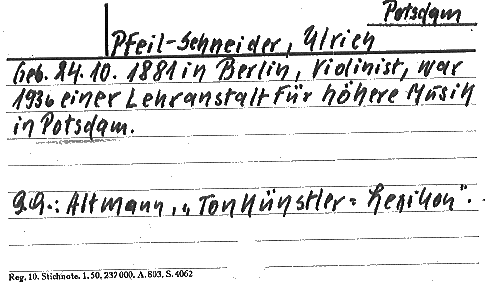 Potsdam
Pfeil-Schneider, Ulrich
Geb. 24.10.1881 in Berlin, Violinist, war
1936 einer Lehranstalt für höhere Musik
in Potsdam.
a.a.: Altmann, „Tonkünstler = Lexikon".
Reg. 10. Stichnote. 1. 50, 237 000. A. 803. S. 4062